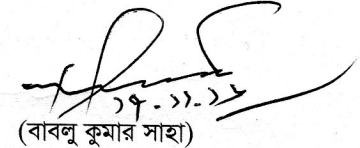 ১৭.১১.১৬
(বাবলু কুমার সাহা)